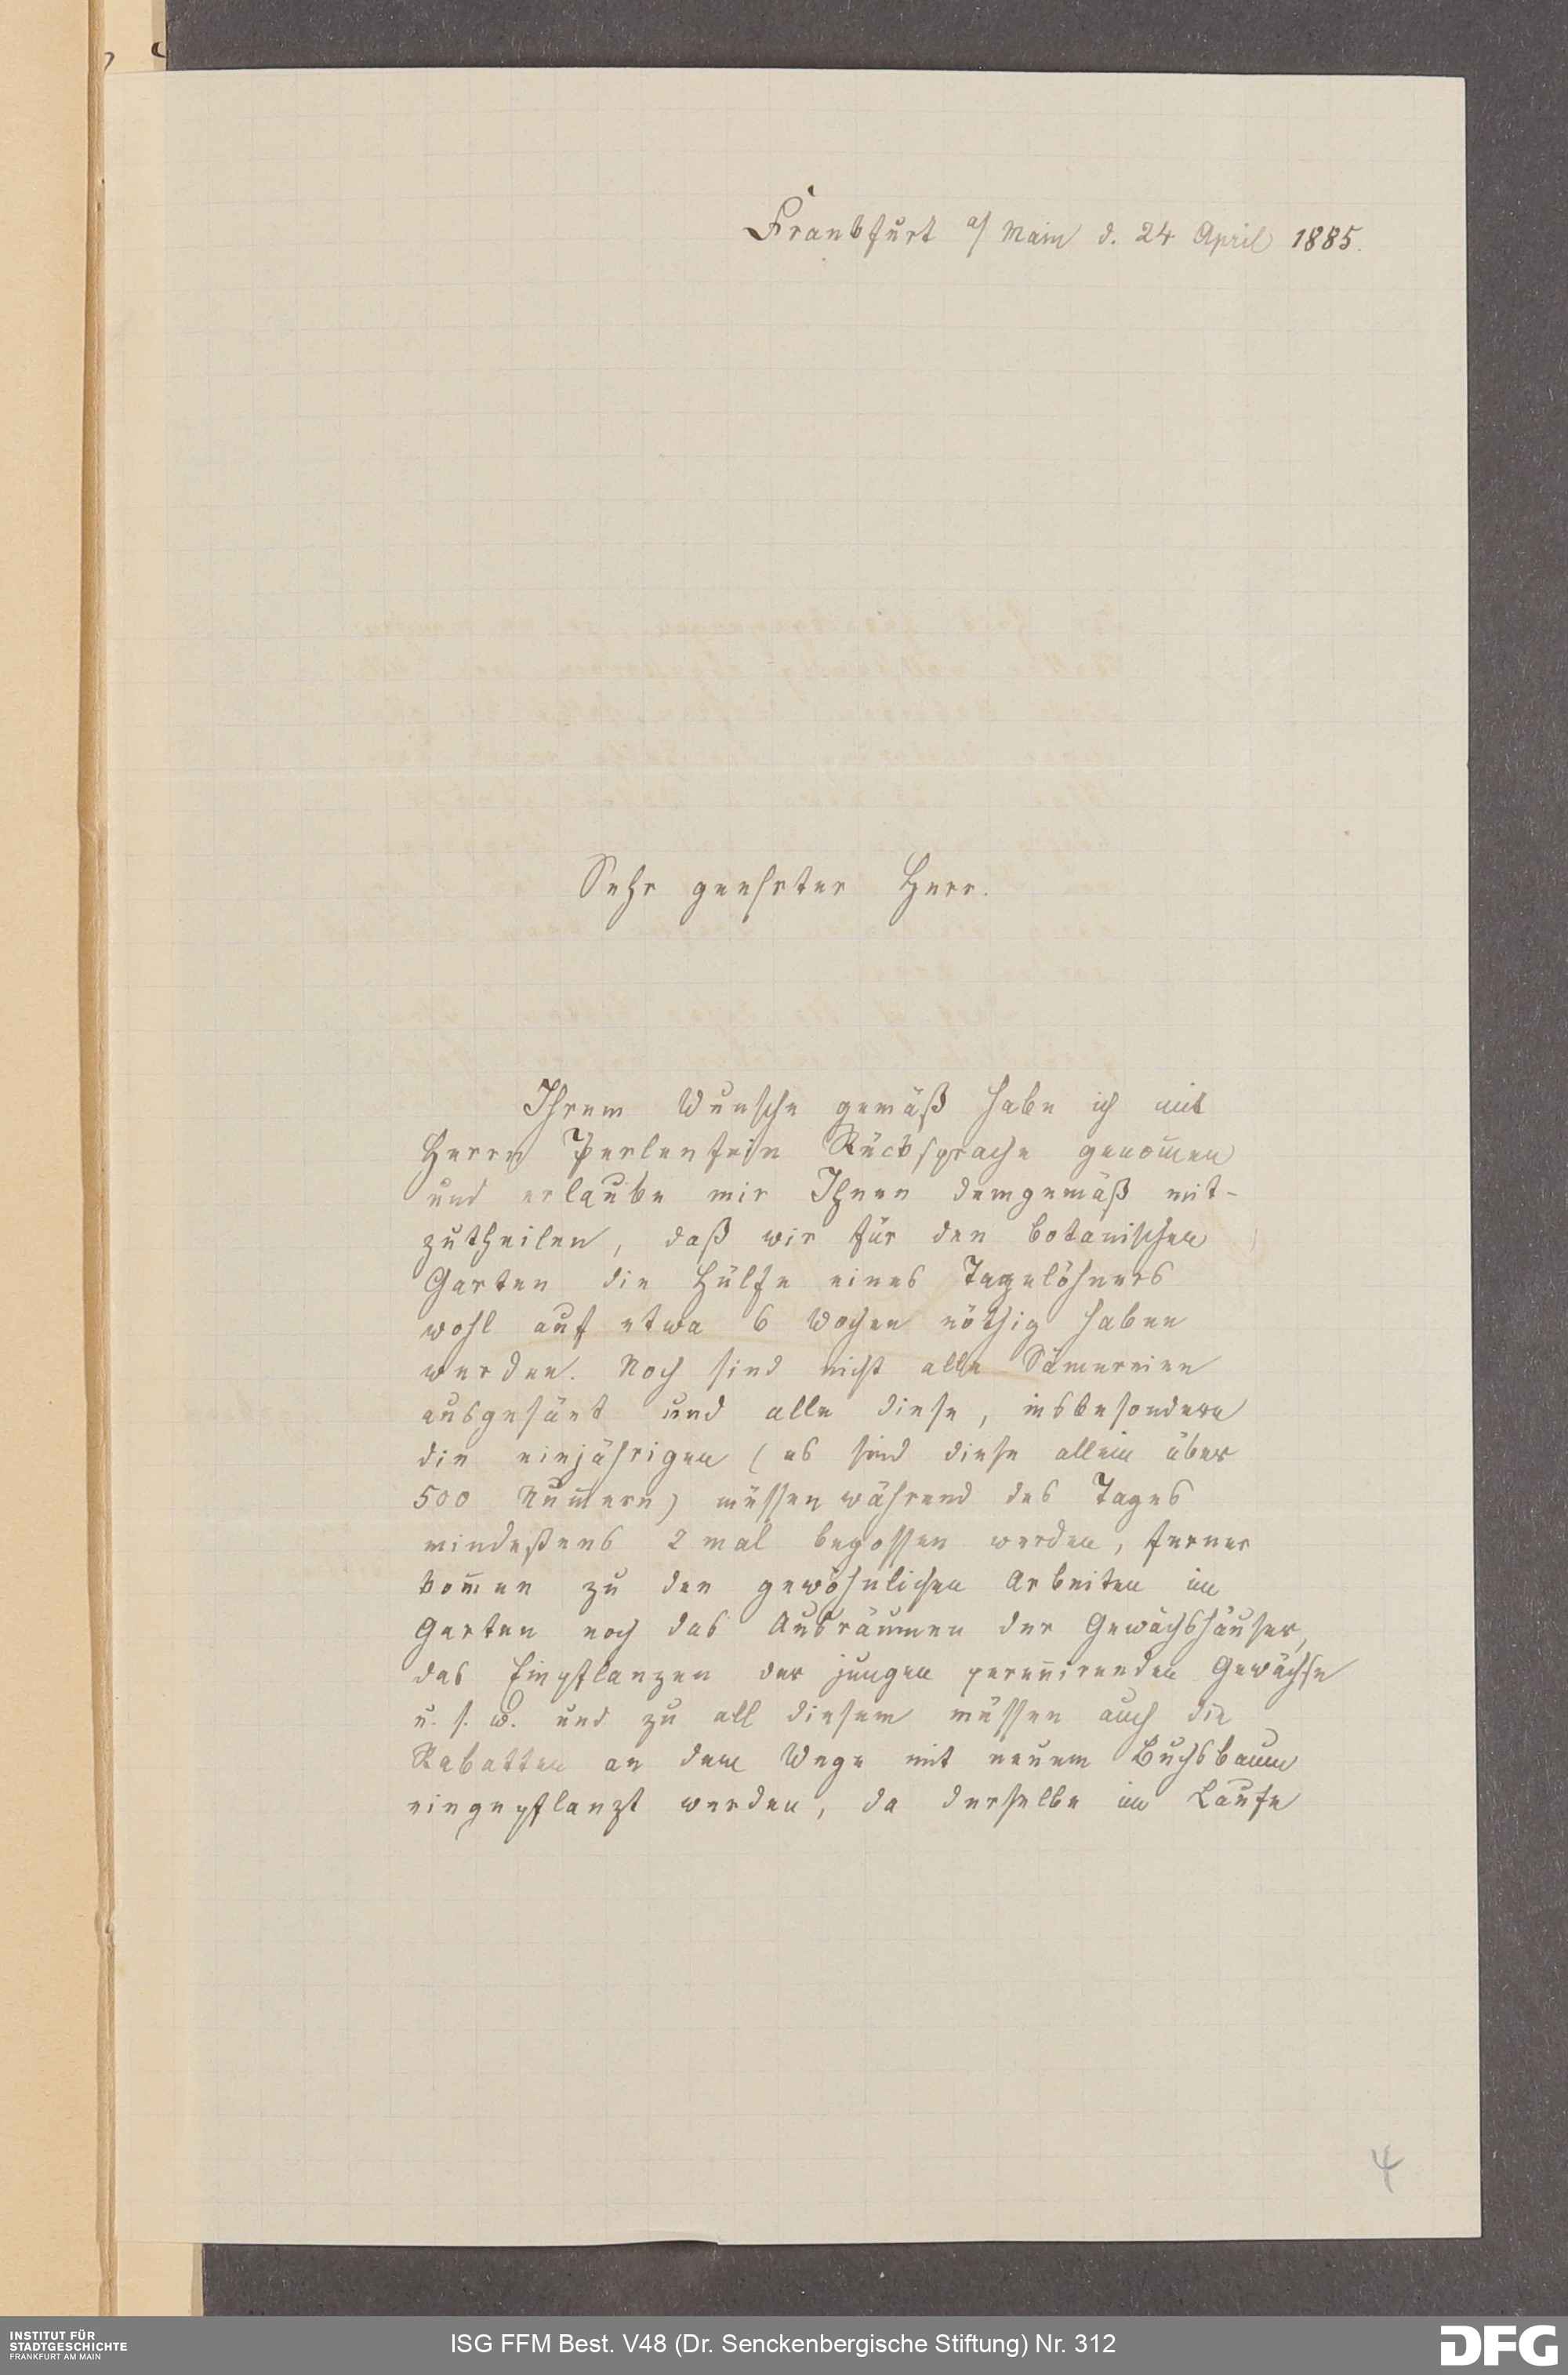 Frankfurt a/ Main d. 24 April 1885.
Sehr geehrter Herr.
Ihrem Wunsche gemäß habe ich mit
Herrn Perlenfein Rücksprache genom̅en
und erlaube mir Ihnen demgemäß mit-
zutheilen, daß wir für den botanischen
Garten die Hülfe eines Tagelöhners
wohl auf etwa 6 Wochen nöthig haben
werden. Noch sind nicht alle Sämereien
ausgesäet und alle diese, insbesondere
die einjährigen (es sind diese allein über
500 Num̅ern) müssen während des Tages
mindestens 2 mal begossen werden, ferner
kom̅en zu den gewöhnlichen Arbeiten im
Garten noch das Ausräumen der Gewächshäuser,
das Einpflanzen der jungen peren̅irenden Gewächse
u. s. w. und zu all diesem müssen auch die
Rabatten an dem Wege mit neuem Buchsbaum
eingepflanzt werden, da derselbe im Laufe
4
INSTITUT FÜR
STADTGESCHICHTE
FRANKFURT AM MAIN
ISG FFM Best. V48 (Dr. Senckenbergische Stiftung) Nr. 312
DFG